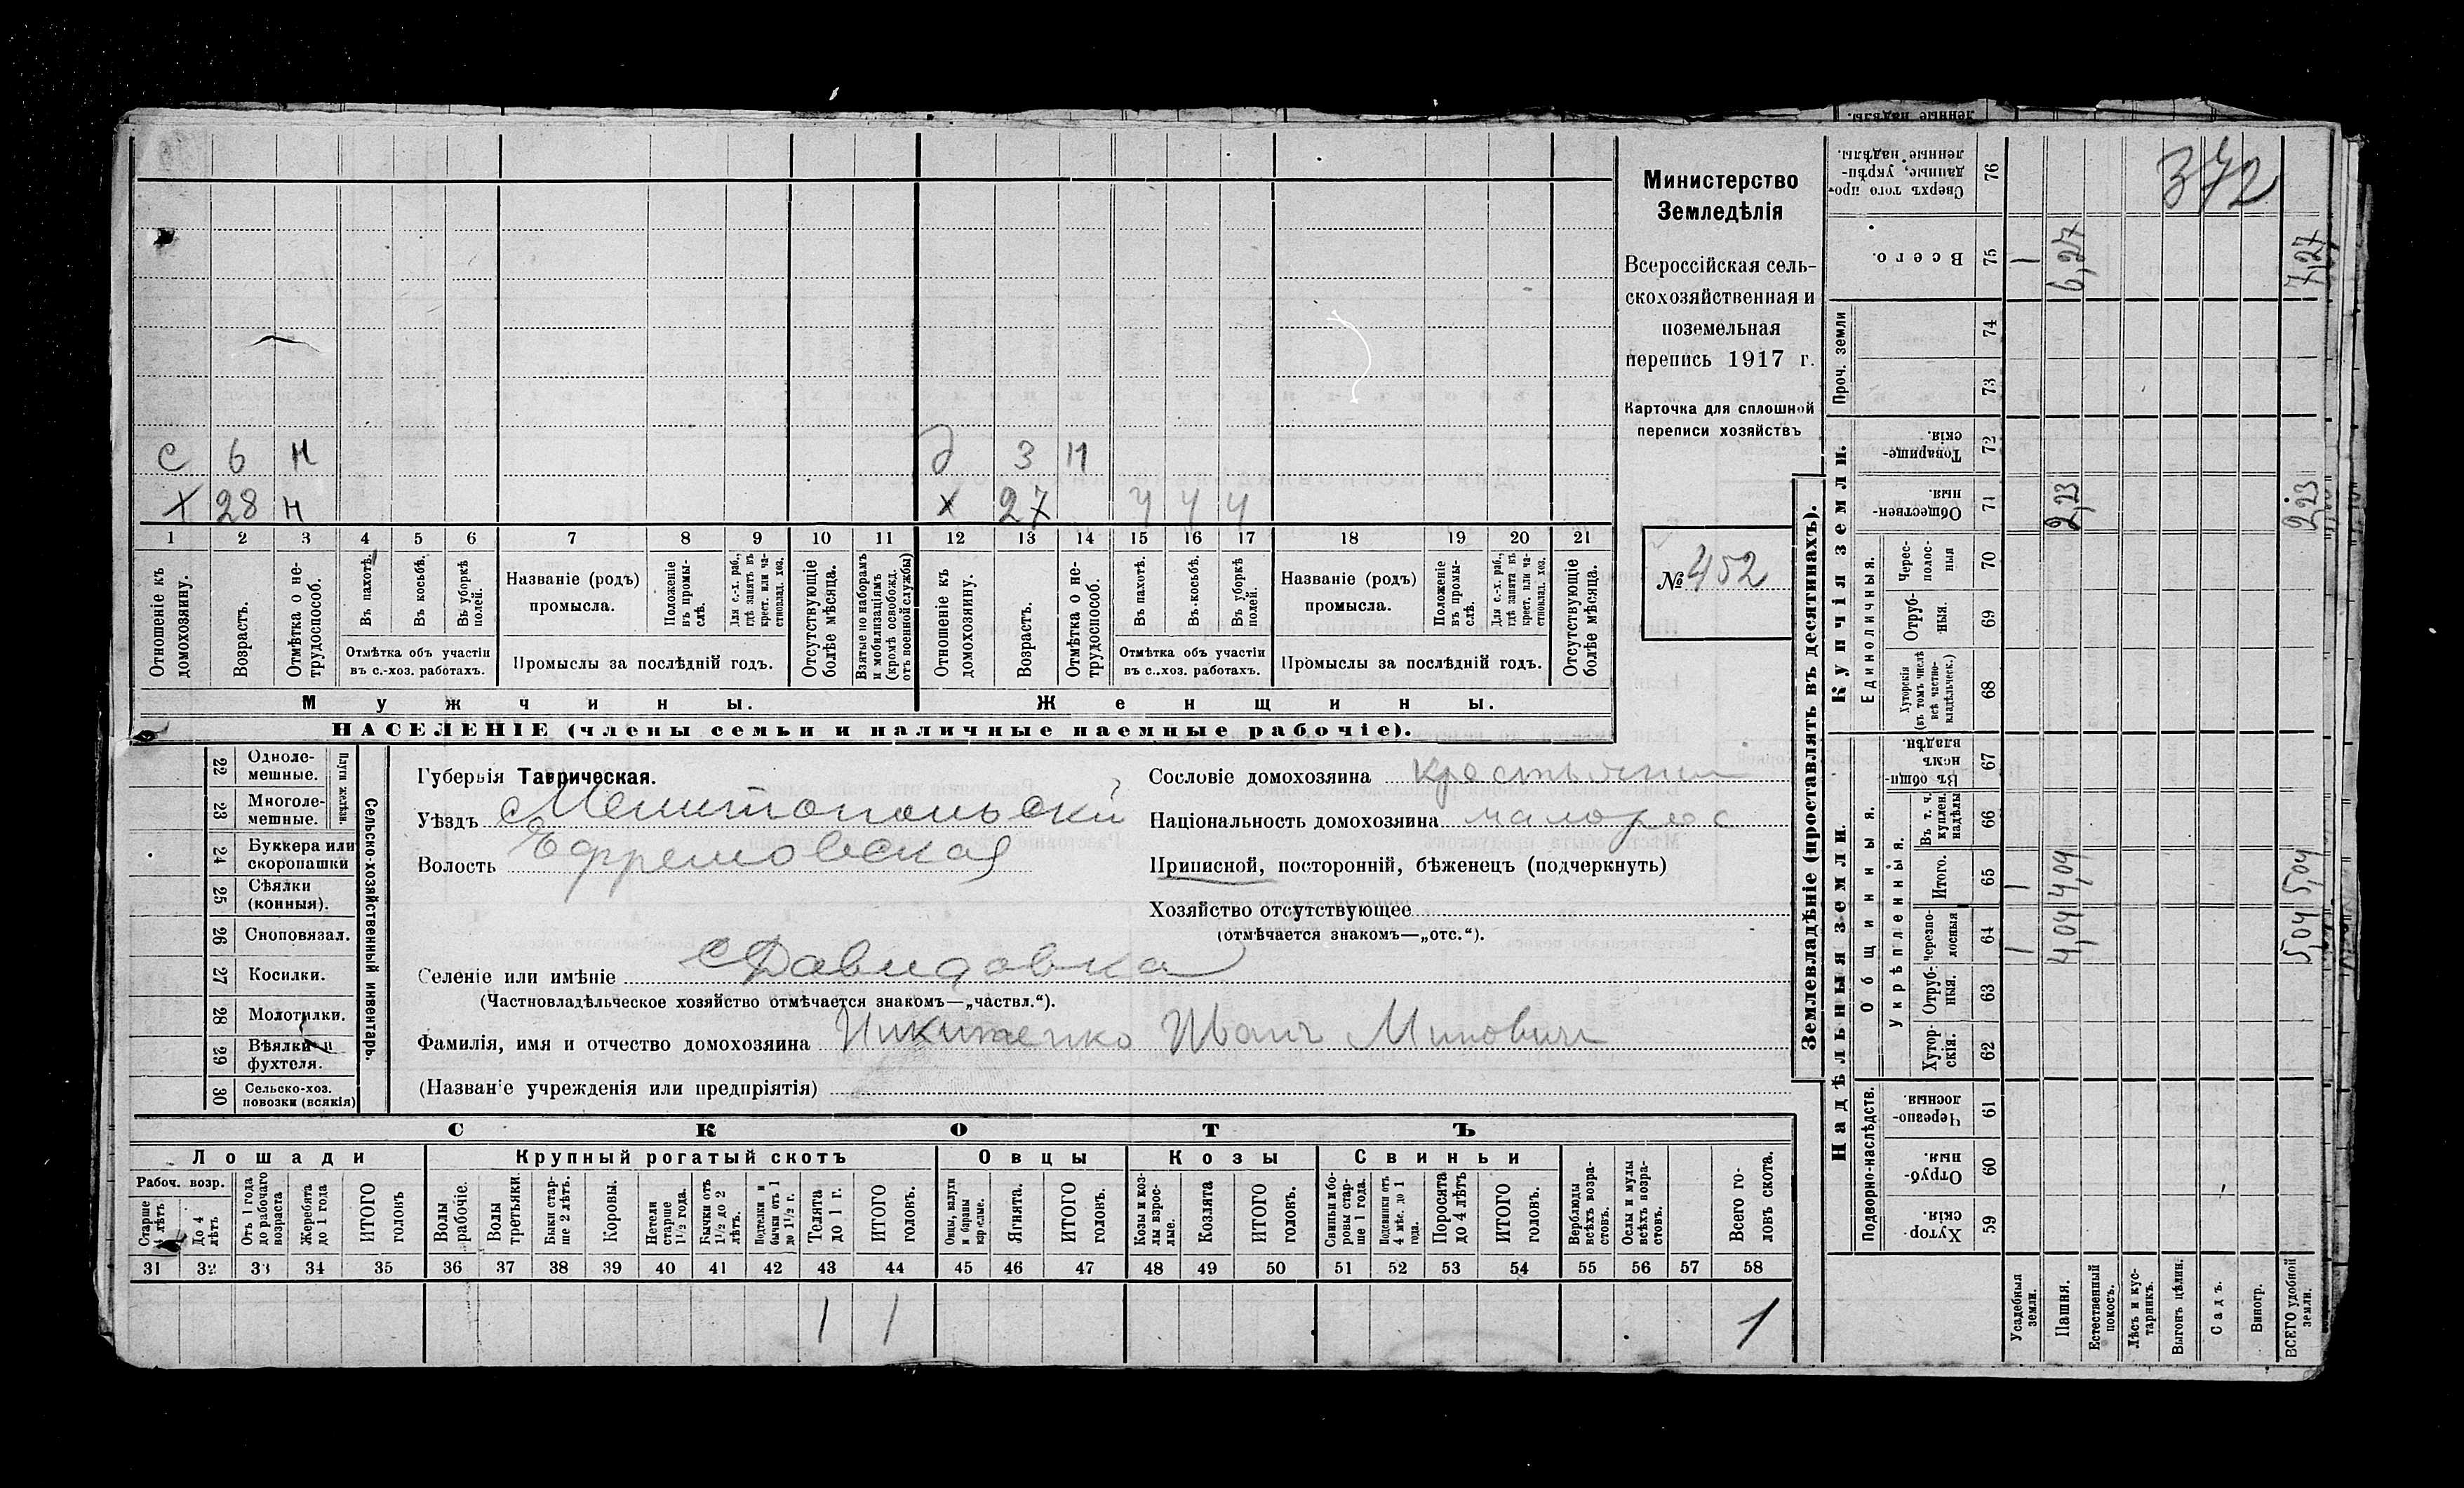 372
Министерство
Земледѣлія
Всероссійская сель-
скохозяйственная и
поземельная
перепись 1917 г.
Карточка для сплошной
переписи хозяйствъ
№ 452
с 6 н д 3 н
х 28 н х 27 ч ч ч
1 2 3 4 5 6 7 8 9 10 11 12 13 14 15 16 17 18 19 20 21
Отношеніе къ домохозяину.
Возрастъ.
Отмѣтка о не-трудоспособ.
Въ пахотѣ.
Въ косьбѣ.
Въ уборкѣ полей.
Отмѣтка объ участіи
въ с.-хоз. работахъ.
Названіе (родъ)
промысла.
Положеніе въ промы-слѣ.
Для с.-х. раб., гдѣ занятъ въ крест. или ча-стновлад. хоз.
Промыслы за послѣдній годъ.
Отсутствующіе болѣе мѣсяца.
Взятые по наборамъ и мобилизаціямъ (кромѣ освобожд. отъ военной службы)
Отношеніе къ домохозяину.
Возрастъ.
Отмѣтка о не-трудоспособ.
Въ пахотѣ.
Въ косьбѣ.
Въ уборкѣ полей.
Отмѣтка объ участіи
въ с..хоз. работахъ.
Названіе (родъ)
промысла.
Положеніе въ промы-слѣ.
Для с.-х. раб., гдѣ занята въ крест. или ча-стновлад. хоз.
Промыслы за послѣдній годъ.
Отсутствующіе болѣе мѣсяца.
Мужчины. Женщины.
НАСЕЛЕНІЕ (члены семьи и наличные наемные рабочіе).
22 Одноле-мешные.
23 Многоле-мешные.
Плуги желѣзн.
24 Буккера или скоропашки
25 Сѣялки (конныя).
26 Сноповязал.
27 Косилки.
28 Молотилки.
29 Вѣялки и фухтеля.
30 Сельско-хоз. повозки (всякія)
Сельско-хозяйственный инвентарь.
Губернія Таврическая.
Уѣздъ Мелитопольскій
Волость Ефремовская
Сословіе домохозяина крестьянин
Національность домохозяина малорос
Приписной, посторонній, бѣженецъ (подчеркнуть)
Хозяйство отсутствующее
(отмѣчается знакомъ—„отс.“).
Селеніе или имѣніе с Давидовка
(Частновладѣльческое хозяйство отмѣчается знакомъ—„частвл.“).
Фамилія, имя и отчество домохозяина Никитенко Иванъ
(Названіе учрежденія или предпріятія)
СКОТЪ
Лошади Крупный рогатый скотъ Овцы Козы Свиньи
Рабоч. возр.
Старше 4 лѣтъ
До 4 лѣтъ
Отъ 1 года до рабочаго возраста
Жеребята до 1 года
ИТОГО головъ
Волы рабочіе.
Волы третьяки.
Быки стар-ше 2 лѣтъ.
Коровы.
Нетели старше 1½ года.
Бычки отъ 1½ до 2 лѣтъ.
Подтелки и бычки отъ 1 до 1½ г.
Телята до 1 г.
ИТОГО головъ.
Овцы, валухи и бараны взрослые.
Ягнята.
ИТОГО головъ.
Козы и коз-лы взрос-лые.
Козлята
ИТОГО головъ.
Свиньи и бо-ровы стар-ше 1 года.
Подсвинки отъ 4 мѣс. до 1 года.
Поросята до 4 лѣтъ
ИТОГО головъ.
Верблюды всѣхъ возра-стовъ.
Ослы и мулы всѣхъ возра-стовъ.
Всего го-ловъ скота.
31 32 33 34 35 36 37 38 39 40 41 42 43 44 45 46 47 48 49 50 51 52 53 54 55 56 57 58
1 1 1
Землевладѣніе (проставлять въ десятинахъ).
Надѣльныя земли. Купчія земли. Проч. земли
Подворно-наслѣдств. Общинныя. Укрѣпленныя. Единоличныя.
59 Хутор-скія.
60 Отруб-ныя.
61 Черезпо-лосныя.
62 Хутор-скія.
63 Отруб-ныя.
64 Черезпо-лосныя
65 Итого.
66 Въ т. ч. куплен. надѣлы
67 Въ общи-немъ владѣн.
68 Хуторскія (въ томъ числѣ всѣ частно-владѣльческ.)
69 Отруб-ныя.
70 Черес-полос-ныя
71 Обществен-ныя.
72 Товарище-скія.
73
74
75 Всего.
76 Сверхъ того про-данные, укрѣп-ленные надѣлы.
Усадебныя земли. 1 1 1
Пашня. 4,04 4,04 2,23 6,27
Естественный покосъ.
Лѣсъ и кус-тарникъ.
Выгонъ цѣлин.
Садъ.
Виногр.
ВСЕГО удобной земли. 5,04 5,04 2,23 7,27
ленные надѣлы.